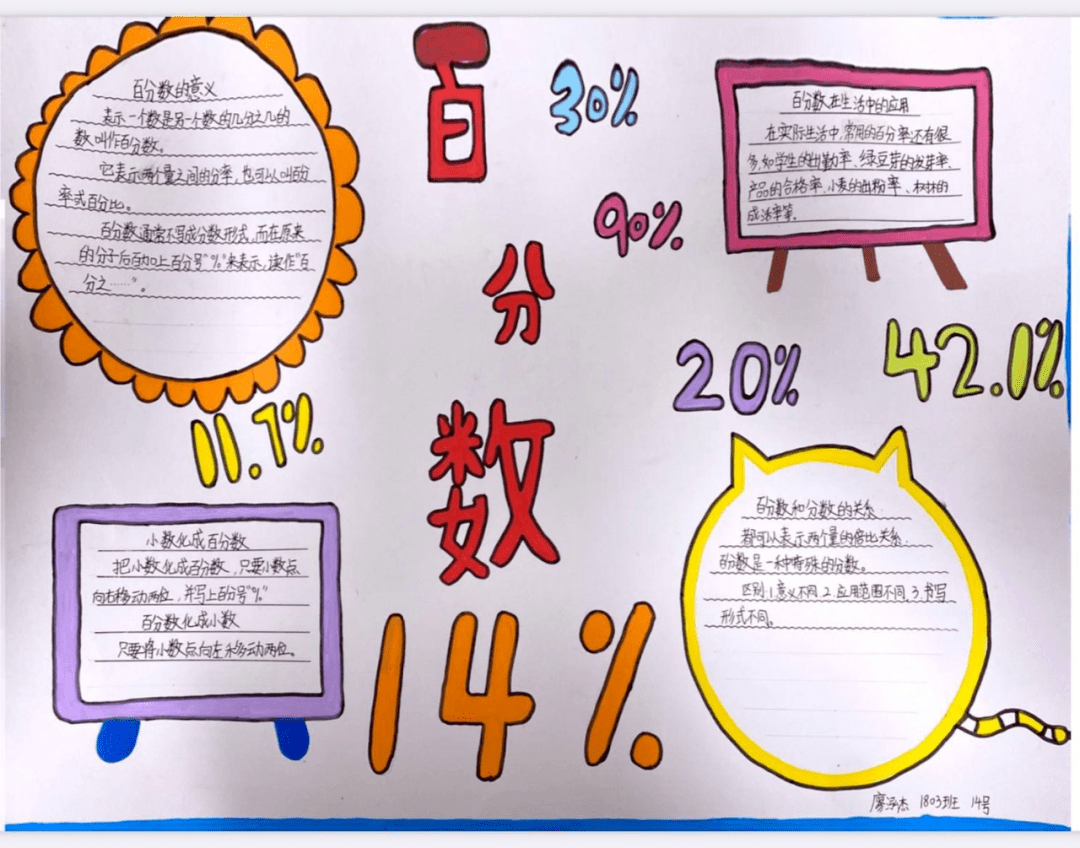 百分数的意义
表示一个数是另一个数的几分之几的
数叫作百分数。
它表示两个量之间的分率,也可以叫百分
率或百分比。
百分数通常不写成分数形式,而在原来
的分子后面加上百分号"%"来表示,读作"百
分之……"。
百
分
数
30%
90%
百分数在生活中的应用
在实际生活中,常用的百分率还有很
多,如学生的出勤率、绿豆芽的发芽率、
产品的合格率、小麦的出粉率、树林的
成活率等。
20%
42.1%
11.7%
小数化成百分数
把小数化成百分数,只要小数点
向右移动两位,并写上百分号"%"
百分数化成小数
只要将小数点向左移动两位。
14%
百分数和分数的关系
都可以表示两个量的倍比关系.
百分数是一种特殊的分数。
区别:1.意义不同 2.应用范围不同 3.书写
形式不同。
廖 杰 1803班 14号